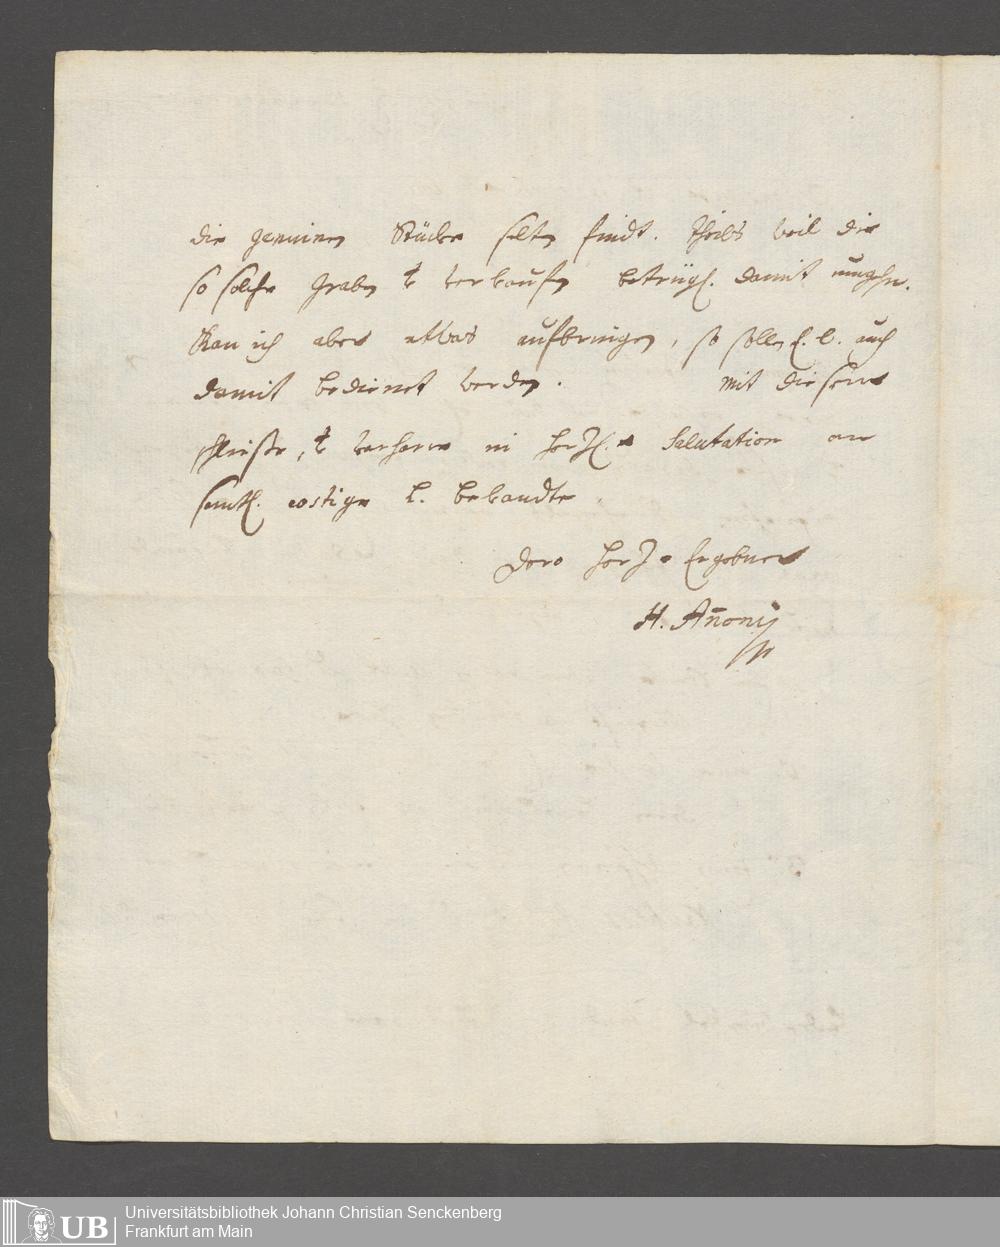 die genuinen Stücke selten findt. theils weil die
so solche graben & verkauffen betrügl. damit umgehn.
Kan ich aber etwas aufbringen, so sollen E. L. auch
damit bedienet werden. Mit diesem
schließe, & verharre in hertzl. Salutation an
samtl. costige L. bekandte
Dero hertz. Ergebner
H. Añony
UB
Universitätsbibliothek Johann Christian Senckenberg
Frankfurt am Main